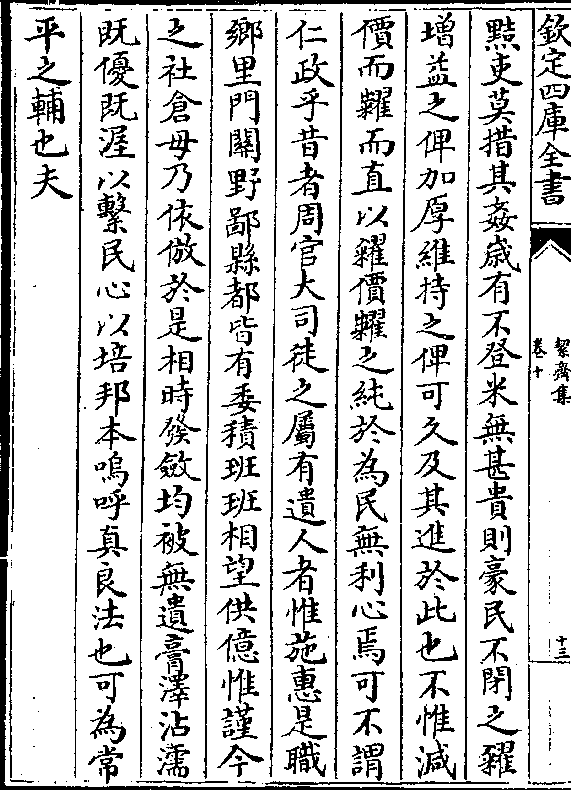 欽定四庫全書
絜齋集
卷十
十三
黠吏莫措其姦歳有不登米無甚貴則豪民不閉之糴
增益之俾加厚維持之俾可久及其進於此也不惟減
價而糶而直以糴價糶之純於為民無利心焉可不謂
仁政乎昔者周官大司徒之屬有遺人者惟施惠是職
鄉里門關野鄙縣都皆有委積班班相望供億惟謹今
之社倉毋乃依倣於是相時發斂均被無遺膏澤沾濡
既優既渥以繫民心以培邦本嗚呼真良法也可為常
平之輔也夫